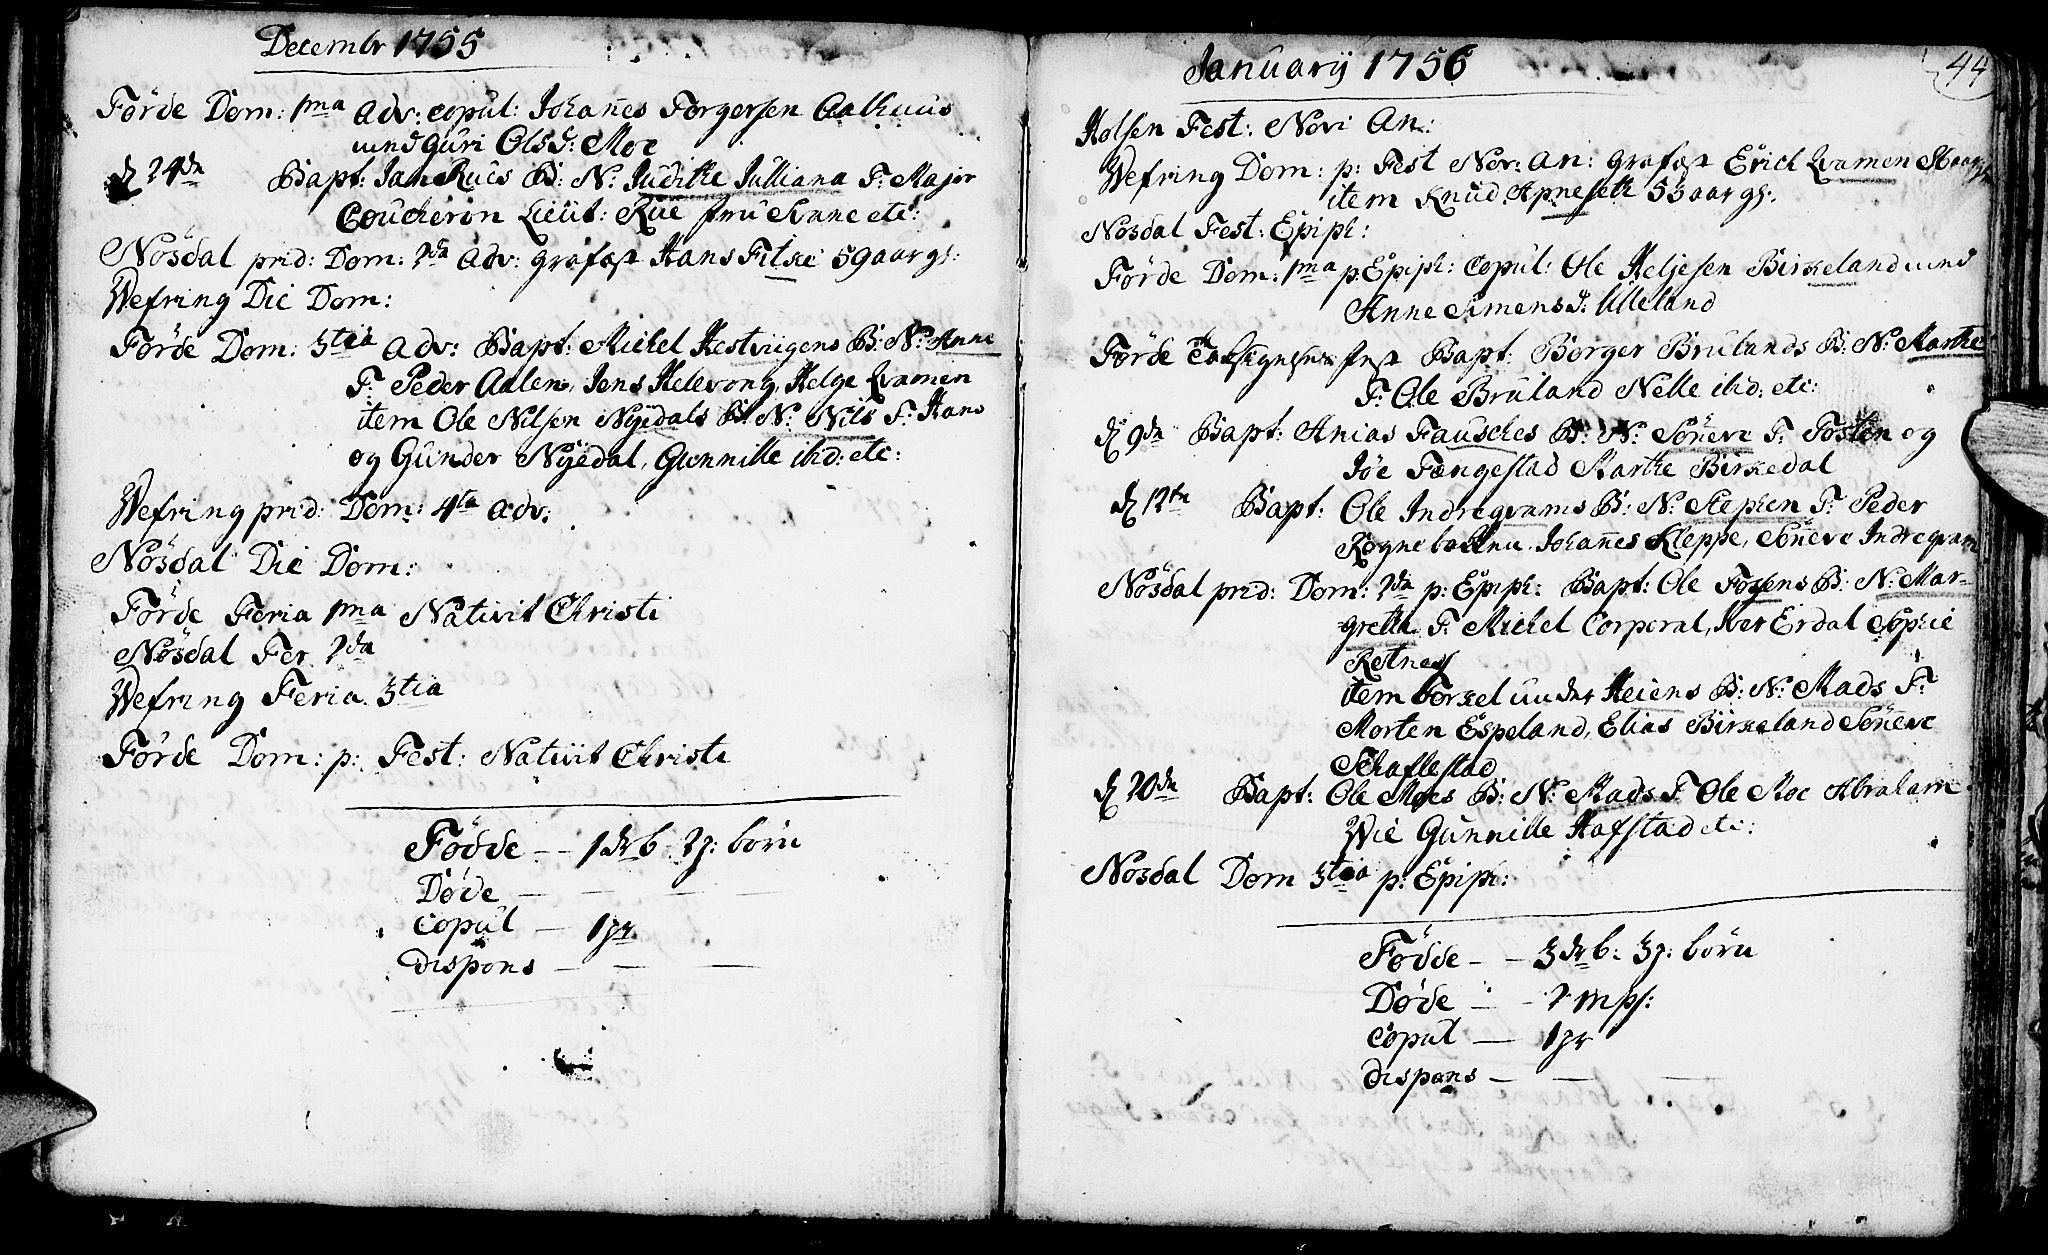 Decembr 1755
Förde Dom: 1ma Adv: copul: Johan̄es Torgersen Aalhuus
und Guri Olsd: Moe
d 24de Bapt: Jan Rues B: N: Judithe Julliana F: Major
Coucheron Lieut: Rue fru Svane etc:
Nösdal prid: Dom: 2da Adv: grafæst Hans Fitze 59 aar gl:
Wefring Die Dom:
Förde Dom: 3tia Adv: Bapt: Michel Hestviigens B: N: Anne
F: Peder Aalen, Jens Helevong, Helge Qvamen
item Ole Nilsen Nyedals B: N: Nils F: Hans
og Gunder Nyedal, Gunnille ibid: etc:
Wefring prid: Dom: 4ta Adv:
Nösdal Die Dom:
Förde Feria 1ma Nativit Christi
Nösdal Fer 2da
Wefring Feria 3tia
Förde Dom: p: Fest: Nativit Christi
Födde – – 1 drb. 2 p: börn
Döde – – –
Copul – 1 pr
dispons – – –
January 1756
44
Holsen Fest: Novi An:
Wefring Dom: p: Fest Nov: An: grafæst Erich Qvamen
item Knud Apneseth 55 aar gl:
Nösdal Fest: Epiph:
Förde Dom: 1ma p Epiph: Copul: Ole Heljesen Birkeland und
Anne Simensd: Ulleland
Förde Bapt: Börger Brulands B: N: Marthe
F: Ole Bruland Nelle ibid: etc:
d 9de Bapt: Anias Fausches B: N: Sön̄eve F: Tosten og
Joe Fængestad Marthe Birkedal
d 12te Bapt: Ole Indreqvams B: N: Stephen F: Peder
Johan̄es Kleppe, Sön̄eve Indreqvam
Nösdal prid: Dom: 2da p: Epiph: Bapt: Ole Fossens B: N: Mar-
grethe F: Michel Corporal, Iver Erdal Sophie
Retnes
item Torkel under Heiens B: N: Mads F:
Morten Espeland, Elias Birkeland Sön̄eve
Schaflestad
d 20de Bapt: Ole Moes B: N: Mads F Ole Moe Abraham
Wie Gunnille Hafstad etc:
Nösdal Dom 3tia p: Epiph:
Födde – – 3 drb: 3 p: börn
Döde – – 2 mpl:
Copul – 1 pr
dispons – – –